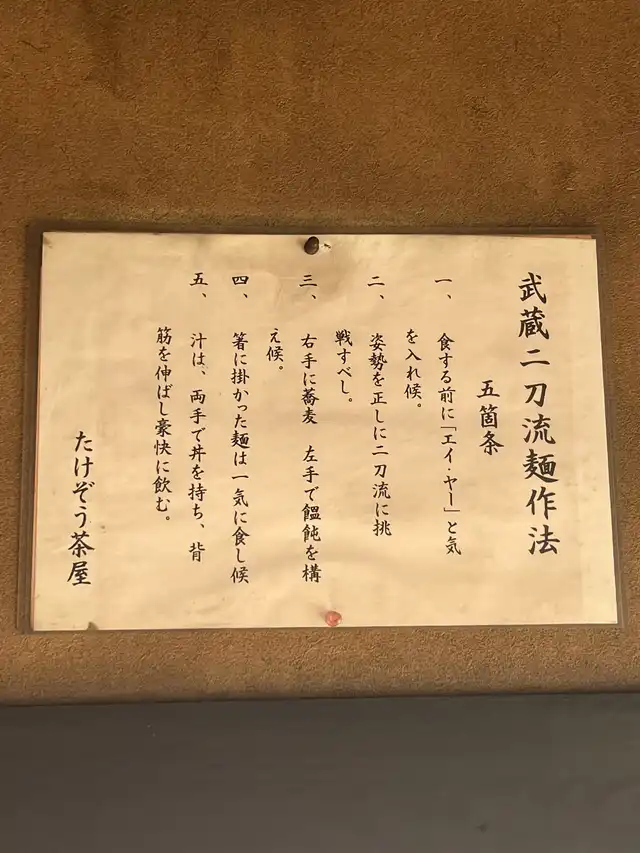 武蔵二刀流麺作法
五箇条
一、 食する前に「エイ・ヤー」と気
を入れ候。
二、 姿勢を正しに二刀流に挑
戦すべし。
三、 右手に蕎麦 左手で饂飩を構
え候。
四、 箸に掛かった麺は一気に食し候
五、 汁は、両手で丼を持ち、背
筋を伸ばし豪快に飲む。
たけぞう茶屋